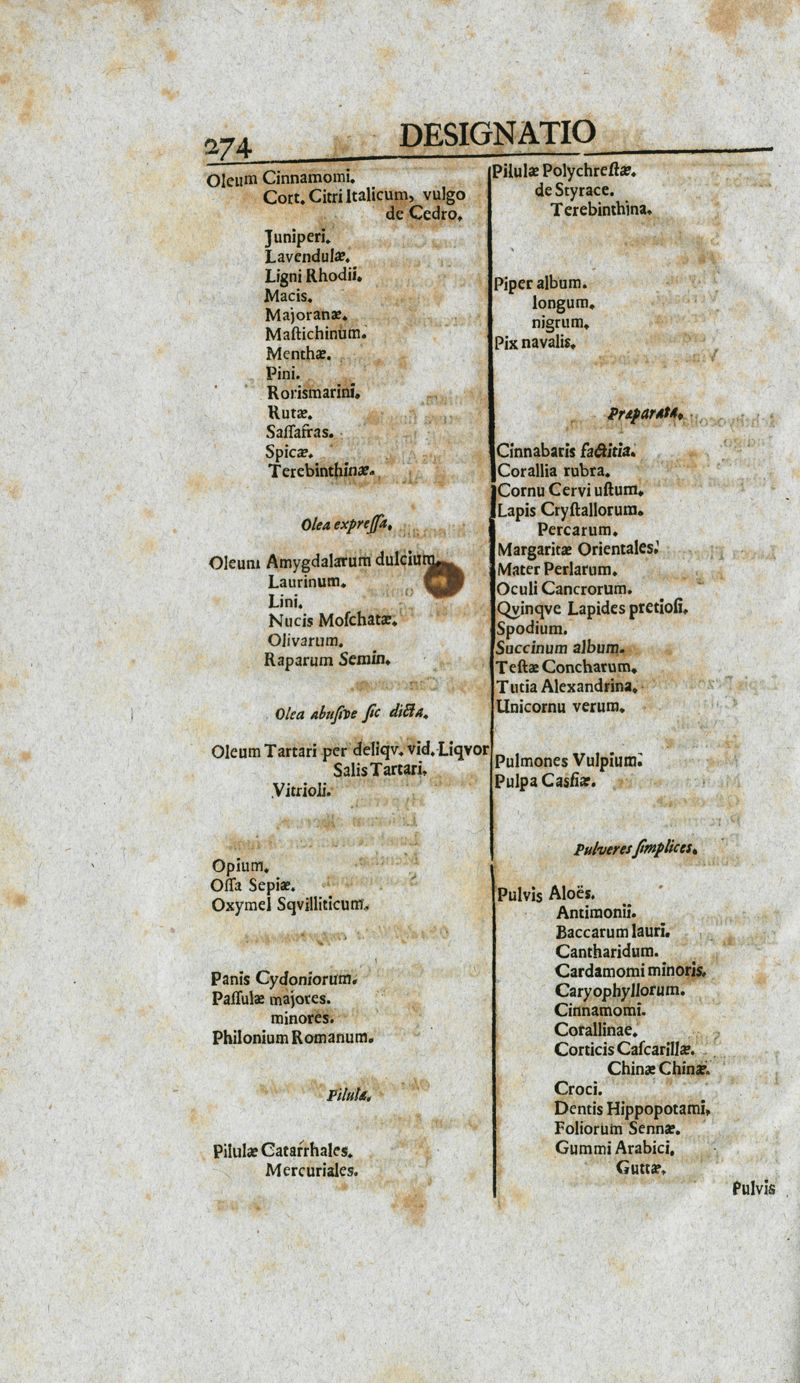 274
DESIGNATIO
Oleum Cinnamomi.
Cort. Citri Italicum, vulgo
de Cedro.
Juniperi.
Lavendulæ.
Ligni Rhodii.
Macis.
Majoranæ.
Maſtichinum.
Menthæ.
Pini.
Rorismarini.
Rutæ.
Saſſafras.
Spicæ.
Terebinthinæ.
Olea expreſſa.
Oleum Amygdalarum dulcium.
Laurinum.
Lini.
Nucis Moſchatæ.
Olivarum.
Raparum Semin.
Olea abuſive ſic dicta.
Oleum Tartari per deliqv. vid. Liqvor
Salis Tartari.
Vitrioli.
Opium.
Oſſa Sepiæ.
Oxymel Sqvilliticum.
Panis Cydoniorum.
Paſſulæ majores.
minores.
Philonium Romanum.
Pilulæ.
Pilulæ Catarrhales.
Mercuriales.
Pilulæ Polychreſtæ.
de Styrace.
Terebinthina.
Piper album.
longum.
nigrum.
Pix navalis.
Præparata.
Cinnabaris factitia.
Corallia rubra.
Cornu Cervi uſtum.
Lapis Cryſtallorum.
Percarum.
Margaritæ Orientales.
Mater Perlarum.
Oculi Cancrorum.
Qvinqve Lapides pretioſi.
Spodium.
Succinum album.
Teſtæ Concharum.
Tutia Alexandrina.
Unicornu verum.
Pulmones Vulpium.
Pulpa Casſiæ.
Pulveres ſimplices.
Pulvis Aloës.
Antimonii.
Baccarum lauri.
Cantharidum.
Cardamomi minoris.
Caryophyllorum.
Cinnamomi.
Corallinae.
Corticis Caſcarillæ.
Chinæ Chinæ.
Croci.
Dentis Hippopotami.
Foliorum Sennæ.
Gummi Arabici.
Guttæ.
Pulvis